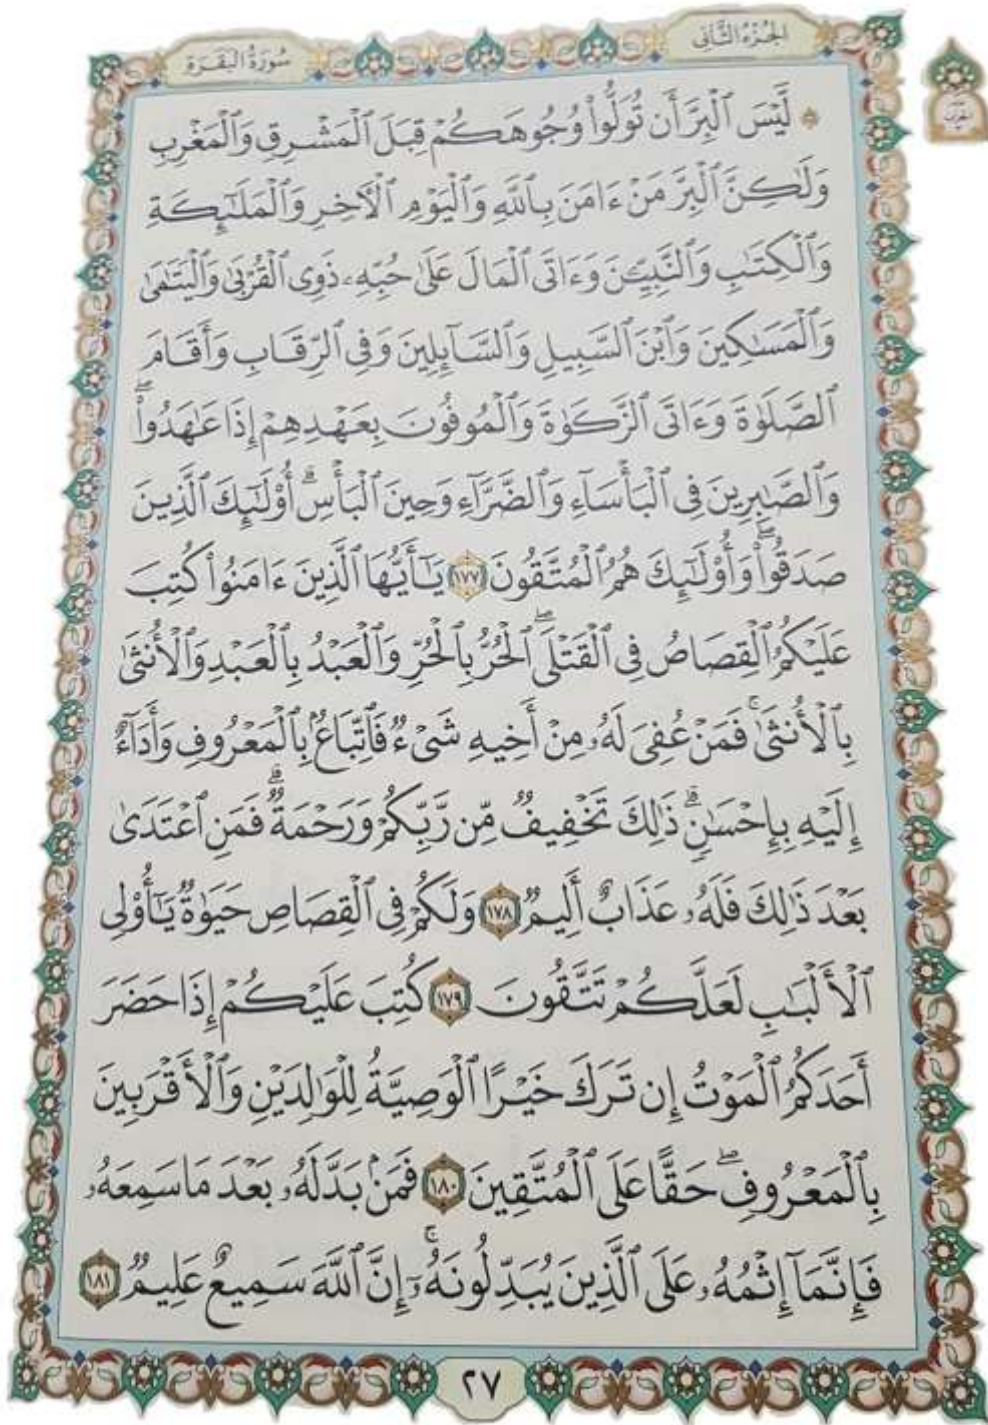 الجزء الثاني
سورة البقرة
۞ لَّيْسَ ٱلْبِرَّ أَن تُوَلُّوا۟ وُجُوهَكُمْ قِبَلَ ٱلْمَشْرِقِ وَٱلْمَغْرِبِ
وَلَٰكِنَّ ٱلْبِرَّ مَنْ ءَامَنَ بِٱللَّهِ وَٱلْيَوْمِ ٱلْءَاخِرِ وَٱلْمَلَٰٓئِكَةِ
وَٱلْكِتَٰبِ وَٱلنَّبِيِّۦنَ وَءَاتَى ٱلْمَالَ عَلَىٰ حُبِّهِۦ ذَوِى ٱلْقُرْبَىٰ وَٱلْيَتَٰمَىٰ
وَٱلْمَسَٰكِينَ وَٱبْنَ ٱلسَّبِيلِ وَٱلسَّآئِلِينَ وَفِى ٱلرِّقَابِ وَأَقَامَ
ٱلصَّلَوٰةَ وَءَاتَى ٱلزَّكَوٰةَ وَٱلْمُوفُونَ بِعَهْدِهِمْ إِذَا عَٰهَدُوا۟ۖ
وَٱلصَّٰبِرِينَ فِى ٱلْبَأْسَآءِ وَٱلضَّرَّآءِ وَحِينَ ٱلْبَأْسِۗ أُو۟لَٰٓئِكَ ٱلَّذِينَ
صَدَقُوا۟ۖ وَأُو۟لَٰٓئِكَ هُمُ ٱلْمُتَّقُونَ ١٧٧ يَٰٓأَيُّهَا ٱلَّذِينَ ءَامَنُوا۟ كُتِبَ
عَلَيْكُمُ ٱلْقِصَاصُ فِى ٱلْقَتْلَىۖ ٱلْحُرُّ بِٱلْحُرِّ وَٱلْعَبْدُ بِٱلْعَبْدِ وَٱلْأُنثَىٰ
بِٱلْأُنثَىٰۚ فَمَنْ عُفِىَ لَهُۥ مِنْ أَخِيهِ شَىْءٌ فَٱتِّبَاعٌۢ بِٱلْمَعْرُوفِ وَأَدَآءٌ
إِلَيْهِ بِإِحْسَٰنٍۗ ذَٰلِكَ تَخْفِيفٌ مِّن رَّبِّكُمْ وَرَحْمَةٌۗ فَمَنِ ٱعْتَدَىٰ
بَعْدَ ذَٰلِكَ فَلَهُۥ عَذَابٌ أَلِيمٌ ١٧٨ وَلَكُمْ فِى ٱلْقِصَاصِ حَيَوٰةٌ يَٰٓأُو۟لِى
ٱلْأَلْبَٰبِ لَعَلَّكُمْ تَتَّقُونَ ١٧٩ كُتِبَ عَلَيْكُمْ إِذَا حَضَرَ
أَحَدَكُمُ ٱلْمَوْتُ إِن تَرَكَ خَيْرًا ٱلْوَصِيَّةُ لِلْوَٰلِدَيْنِ وَٱلْأَقْرَبِينَ
بِٱلْمَعْرُوفِۖ حَقًّا عَلَى ٱلْمُتَّقِينَ ١٨٠ فَمَنۢ بَدَّلَهُۥ بَعْدَ مَا سَمِعَهُۥ
فَإِنَّمَآ إِثْمُهُۥ عَلَى ٱلَّذِينَ يُبَدِّلُونَهُۥٓۚ إِنَّ ٱللَّهَ سَمِيعٌ عَلِيمٌ ١٨١
٢٧